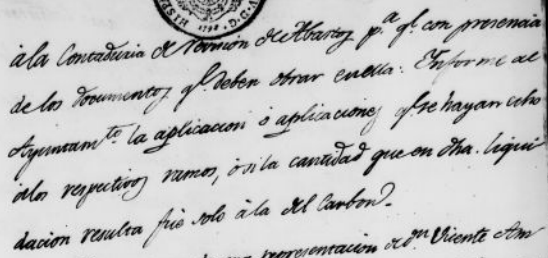 àla Contaduria de Revision de Abastoz p.ª q.e con presencia
de los Documentoz q.e deben obrar en ella: Informe al
Ayuntam.to la aplicacion ó aplicacionez q.e se hayan echo
álos respectivoz ramos, ó si la cantidad que en dha. liqui
dacion resulta fue solo àla del Carbon.
representacion de d.n Vicente Am